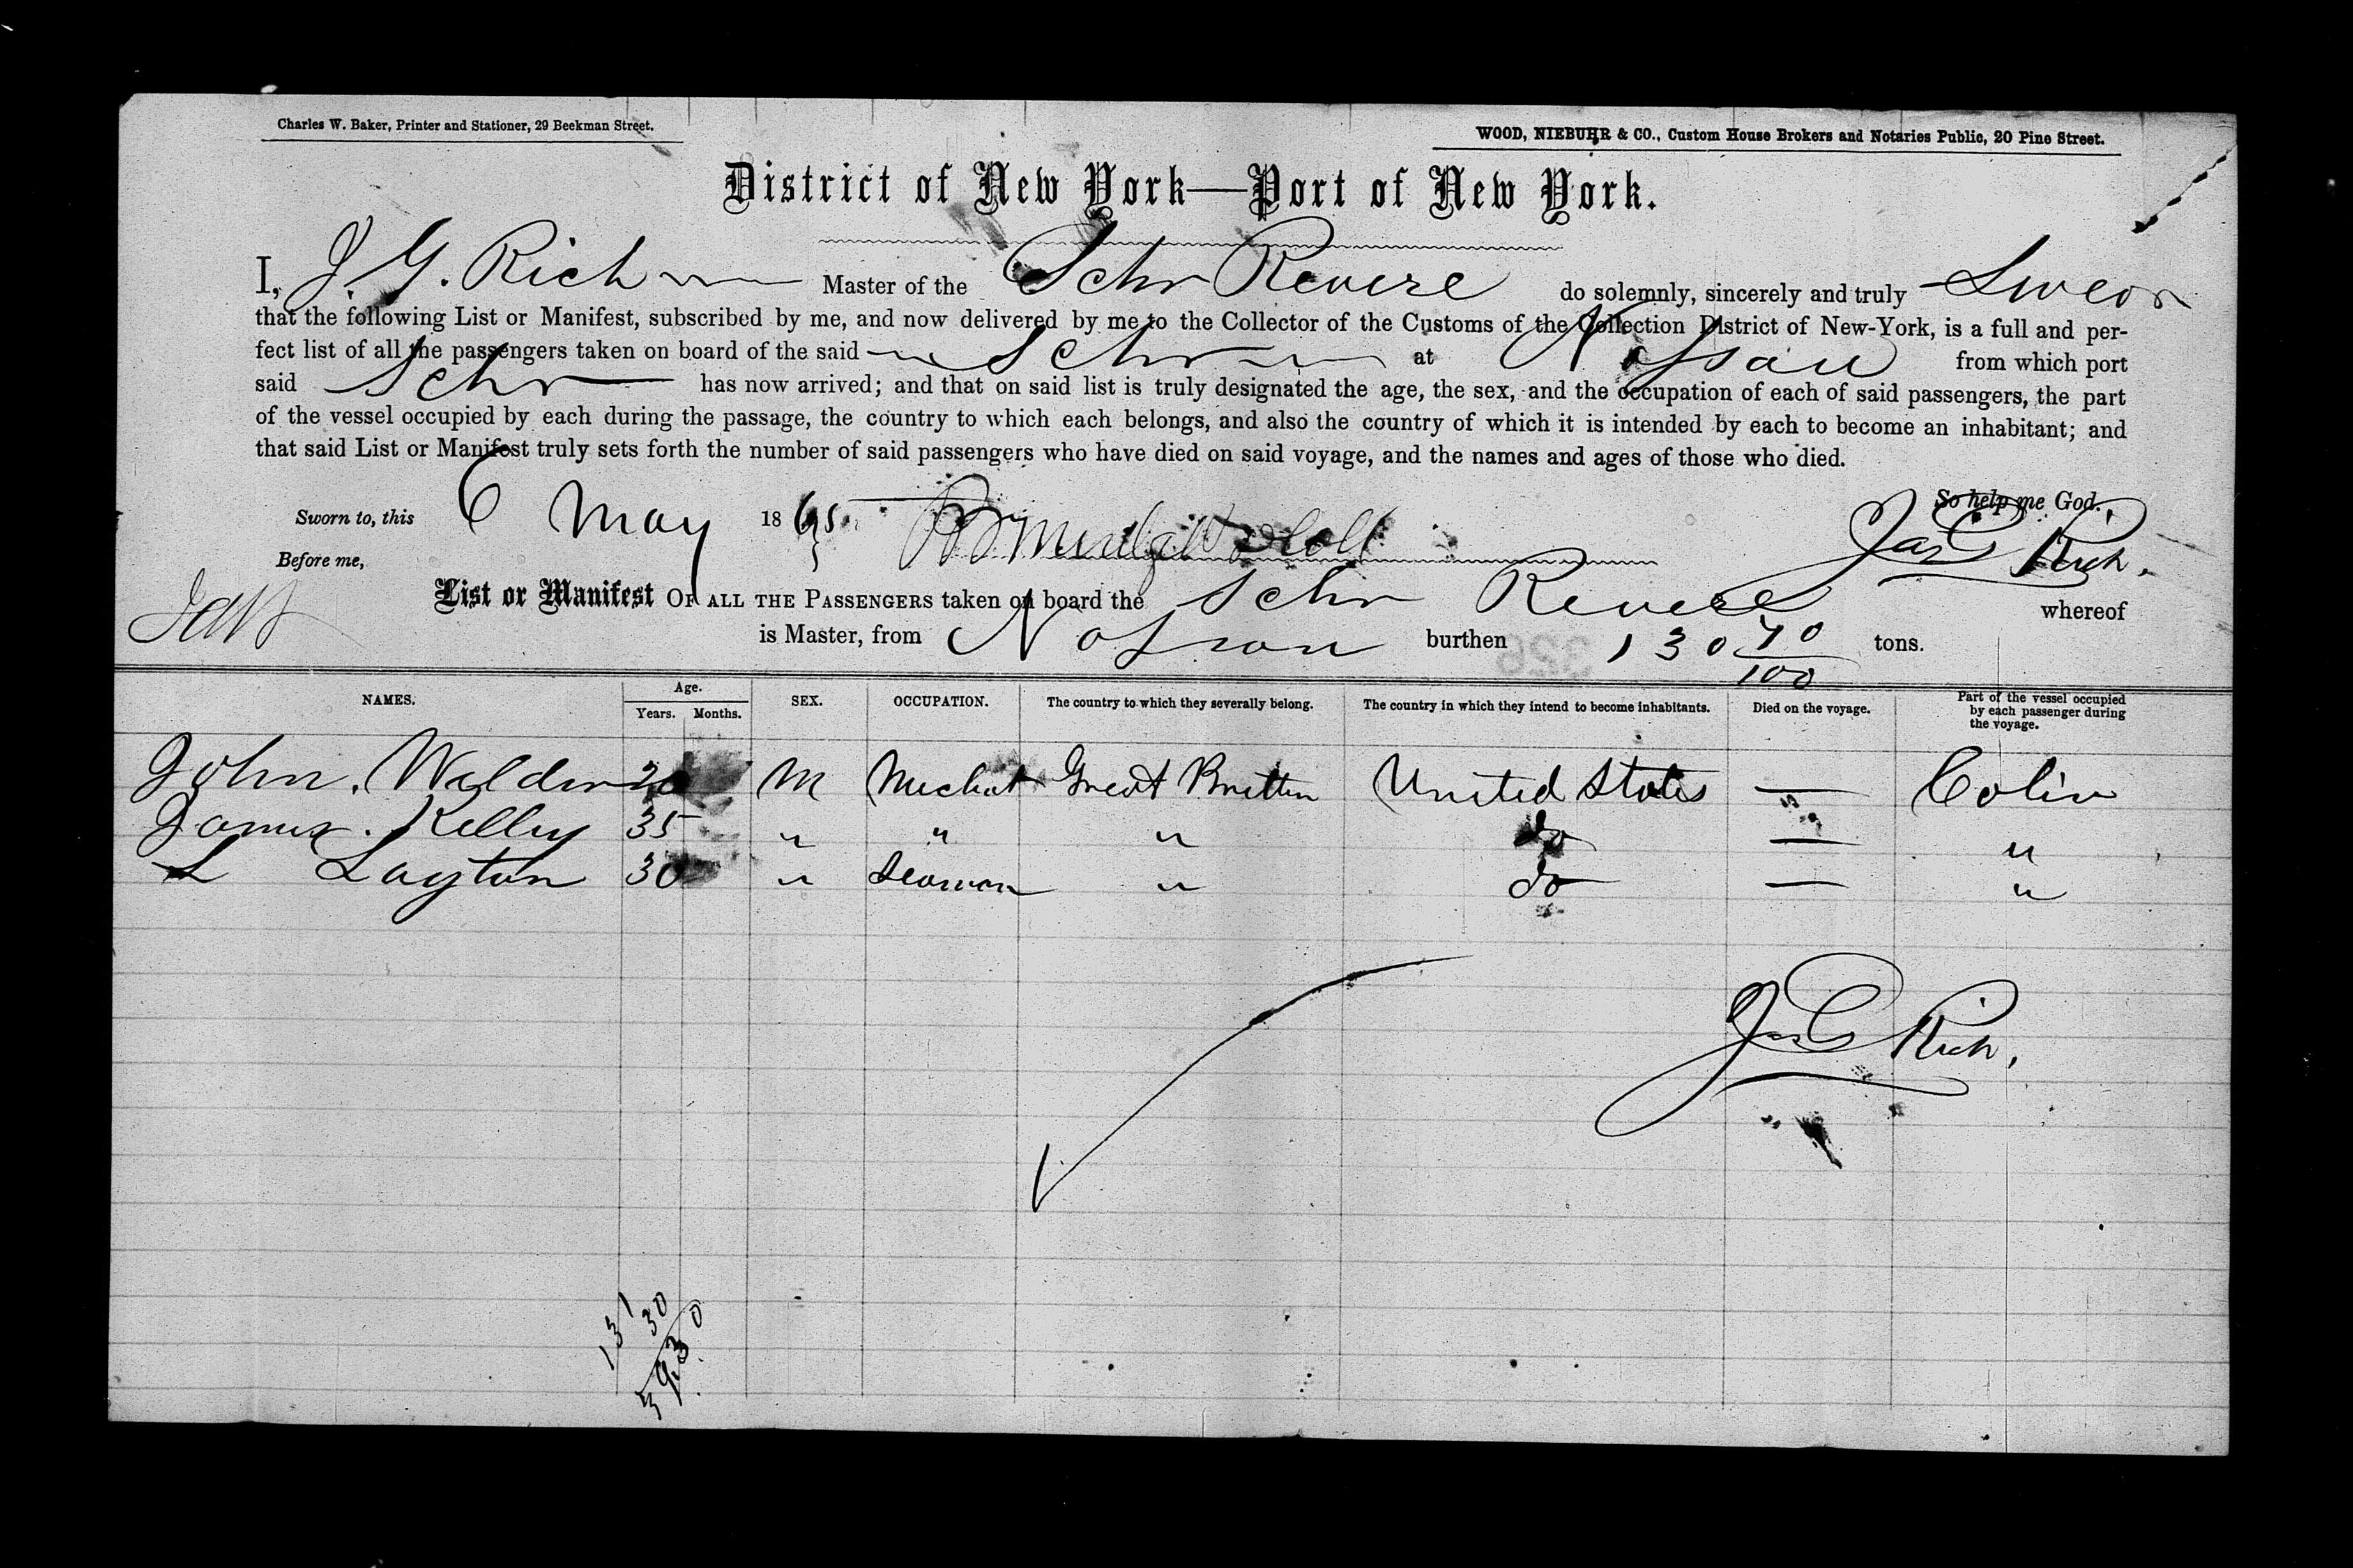 Charles W. Baker, Printer and Stationer, 29 Beekman Street.
WOOD, NIEBUHR & CO., Custom House Brokers and Notaries Public, 20 Pine Street.
District of New York—Port of New York.
I, J. G. Rich Master of the Schr Revere do solemnly, sincerely and truly Swear
that the following List or Manifest, subscribed by me, and now delivered by me to the Collector of the Customs of the Collection District of New-York, is a full and per-
fect list of all the passengers taken on board of the said Schr at Nassau from which port
said Schr has now arrived; and that on said list is truly designated the age, the sex, and the occupation of each of said passengers, the part
of the vessel occupied by each during the passage, the country to which each belongs, and also the country of which it is intended by each to become an inhabitant; and
that said List or Manifest truly sets forth the number of said passengers who have died on said voyage, and the names and ages of those who died.
So help me God.
Sworn to, this 6 May 1865 Jas G Rich.
Before me,
List or Manifest OF ALL THE PASSENGERS taken on board the Schr Revere whereof
is Master, from Nassau burthen 130 70/100 tons.
326
NAMES. Age. Years. Months. SEX. OCCUPATION. The country to which they severally belong. The country in which they intend to become inhabitants. Died on the voyage. Part of the vessel occupied by each passenger during the voyage.
John. 28 M Great Britten United States —
James. Kelley 35 " " " do — "
L Layton 30 " Seaman " do — "
Jas G Rich.
131 30
3930